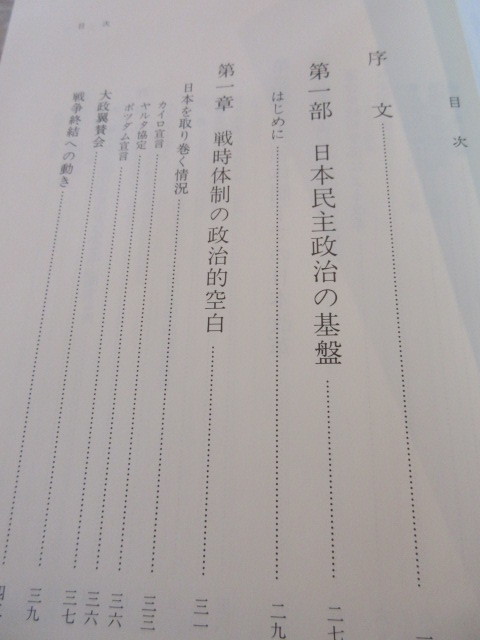 目次
序文 一
第一部 日本民主政治の基盤 二七
はじめに 二九
第一章 戦時体制の政治的空白 三一
日本を取り巻く情況 三三
カイロ宣言 三六
ヤルタ協定 三六
ポツダム宣言 三七
大政翼賛会 三九
戦争終結への動き
目次